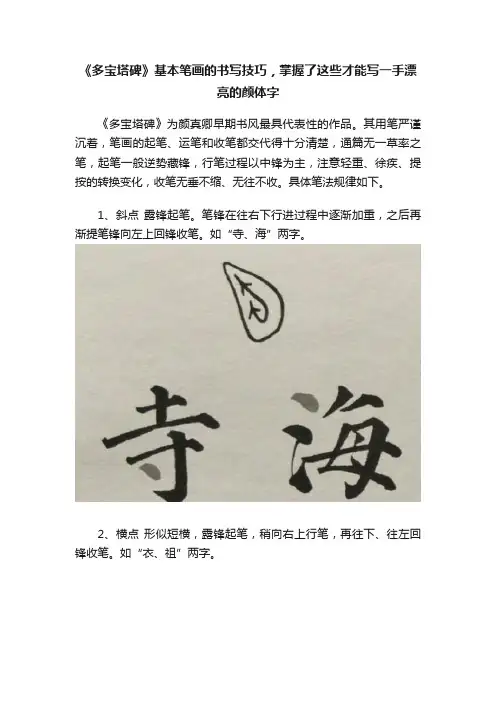 《多宝塔碑》基本笔画的书写技巧，掌握了这些才能写一手漂
亮的颜体字
《多宝塔碑》为颜真卿早期书风最具代表性的作品。其用笔严谨
沉着，笔画的起笔、运笔和收笔都交代得十分清楚，通篇无一草率之
笔，起笔一般逆势藏锋，行笔过程以中锋为主，注意轻重、徐疾、提
按的转换变化，收笔无垂不缩、无往不收。具体笔法规律如下。
1、斜点 露锋起笔。笔锋在往右下行进过程中逐渐加重，之后再
渐提笔锋向左上回锋收笔。如“寺、海”两字。
寺 海
2、横点 形似短横，露锋起笔，稍向右上行笔，再往下、往左回
锋收笔。如“衣、祖”两字。